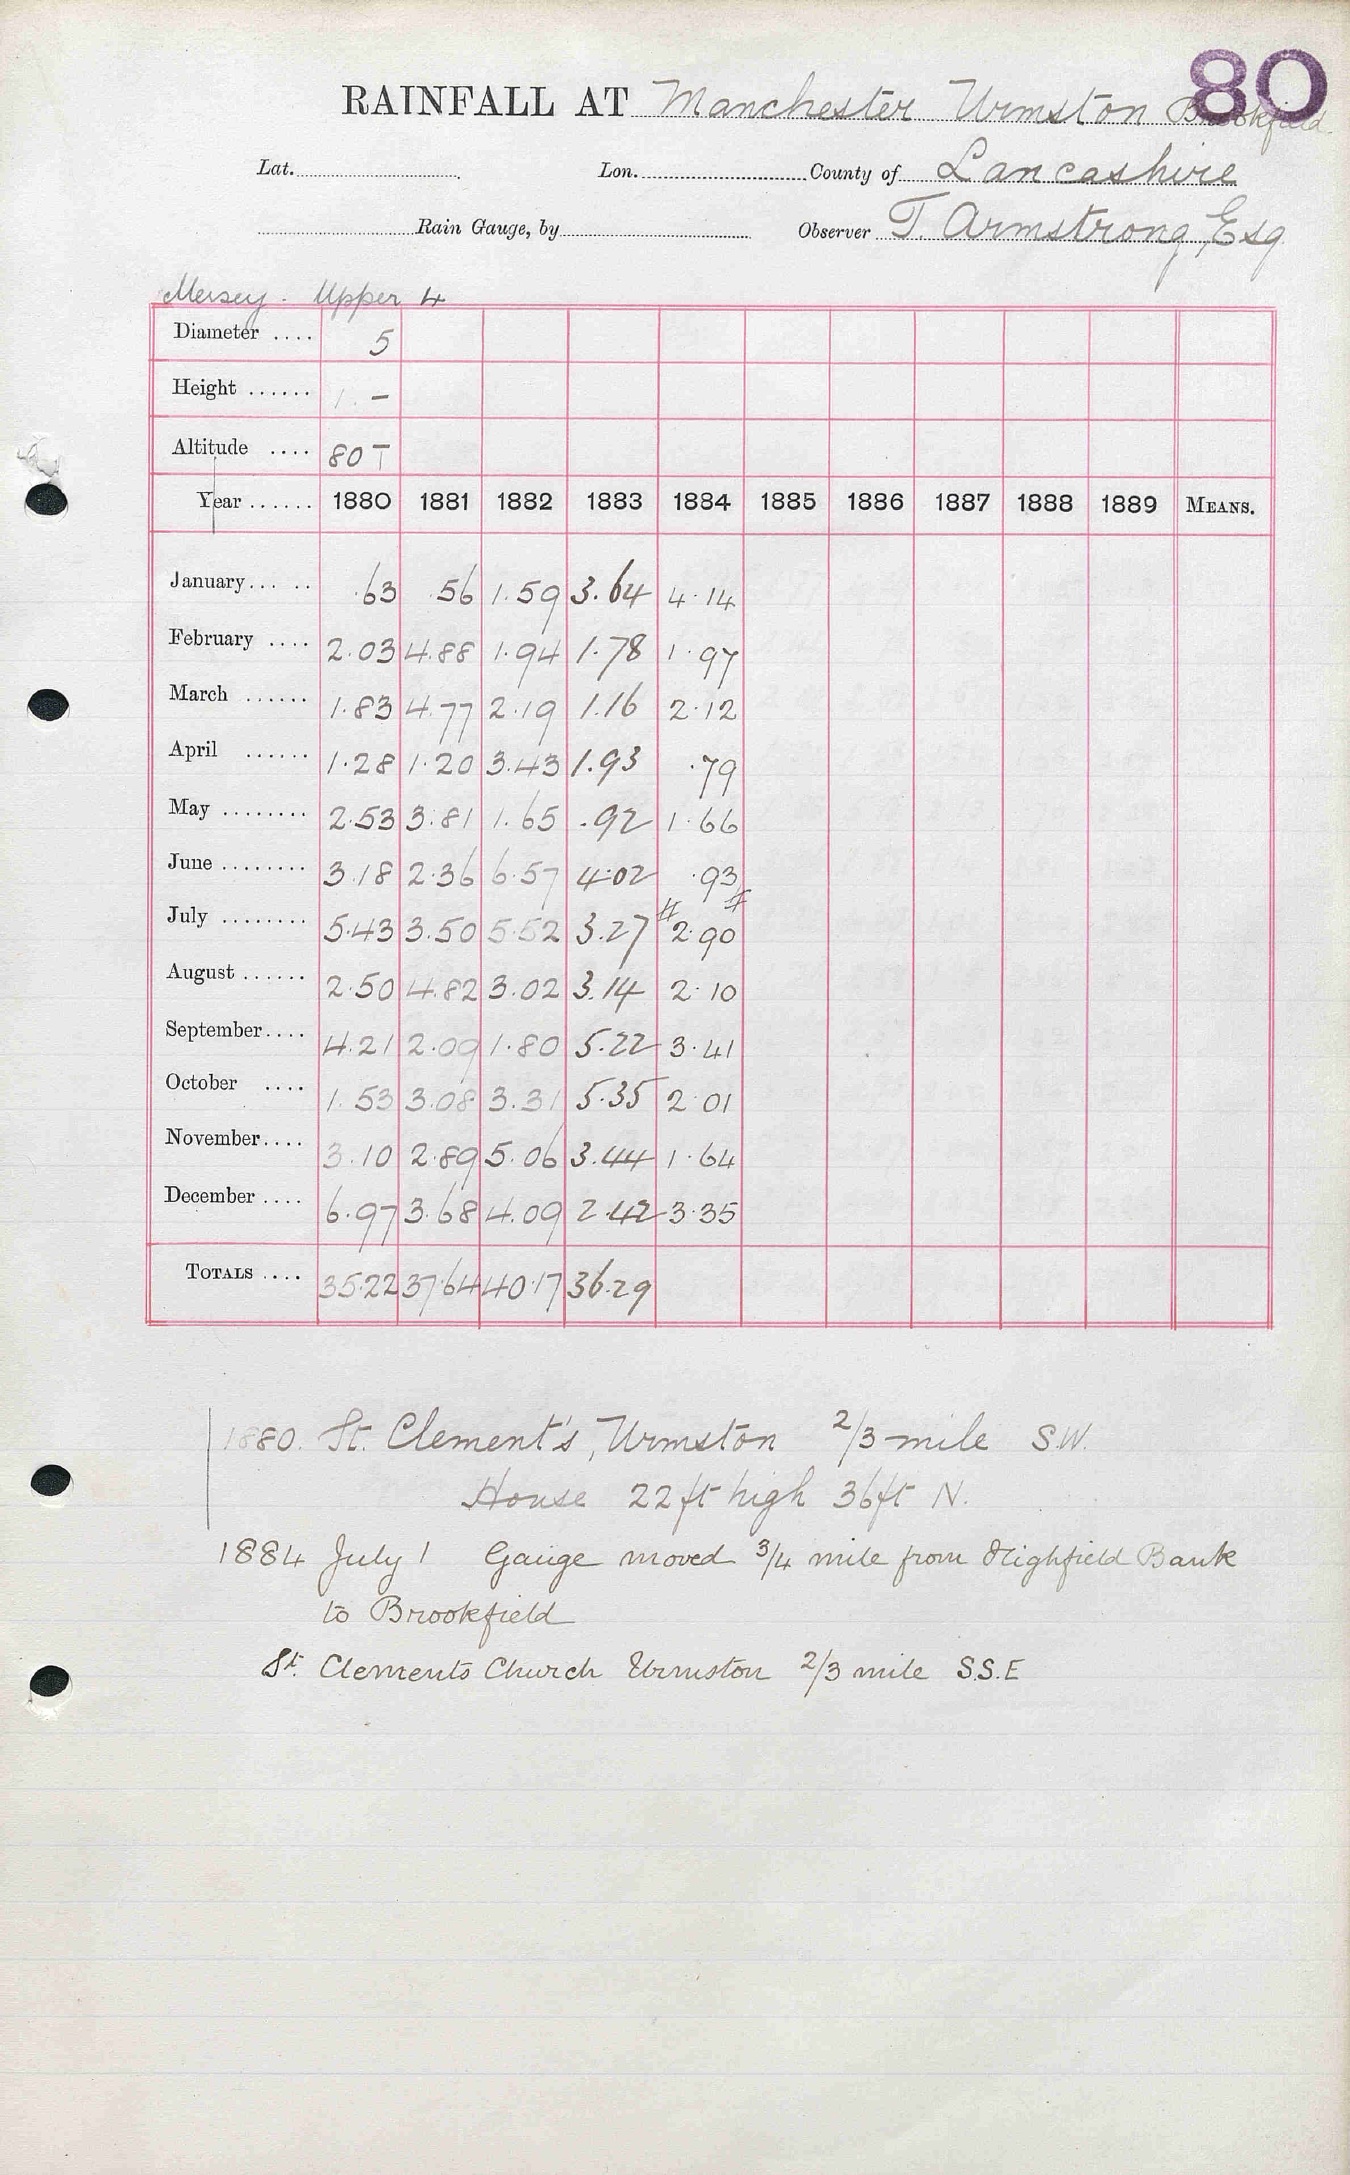 80
RAINFALL AT Manchester Urmston Brookfield
Lat. Lon. County of Lancashire
Rain Gauge, by Observer T. Armstrong Esq
Mersey. Upper 4
Diameter .... 5
Height ...... 1. –
Altitude .... 80 T
Year ...... 1880 1881 1882 1883 1884 1885 1886 1887 1888 1889 MEANS.
January... .. .63 .56 1.59 3.64 4.14
February .... 2.03 4.88 1.94 1.78 1.97
March ...... 1.83 4.77 2.19 1.16 2.12
April ...... 1.28 1.20 3.43 1.93 .79
May ........ 2.53 3.81 1.65 .92 1.66
June ........ 3.18 2.36 6.57 4.02 .93
July ........ 5.43 3.50 5.52 3.27 2.90
August ...... 2.50 4.82 3.02 3.14 2.10
September.... 4.21 2.09 1.80 5.22 3.41
October .... 1.53 3.08 3.31 5.35 2.01
November.... 3.10 2.89 5.06 3.44 1.64
December .... 6.97 3.68 4.09 2.42 3.35
TOTALS .... 35.22 37.64 40.17 36.29
1880. St. Clement's, Urmston 2/3 mile S.W.
House 22 ft high 36 ft N.
1884 July 1 Gauge moved 3/4 mile from Highfield Bank
to Brookfield
St. Clements Church Urmston 2/3 mile S.S.E